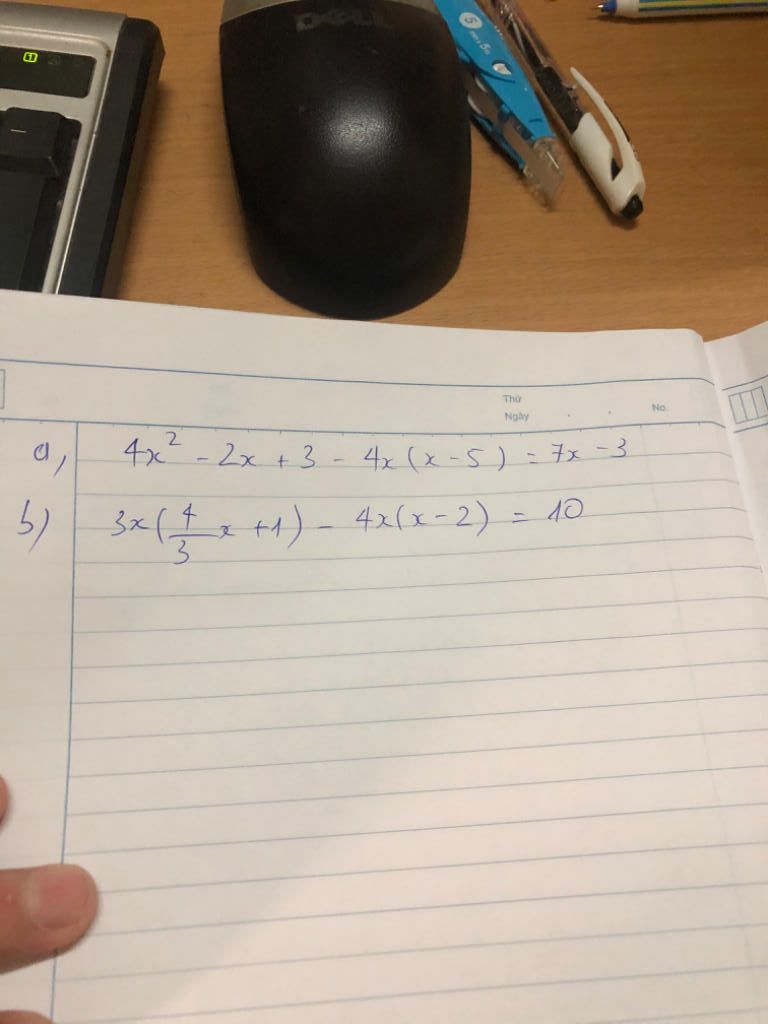 DELL
1
5
Thứ
Ngày . . No.
a, 4x² - 2x + 3 - 4x(x - 5) = 7x - 3
b) 3x(4/3 x + 1) - 4x(x - 2) = 10